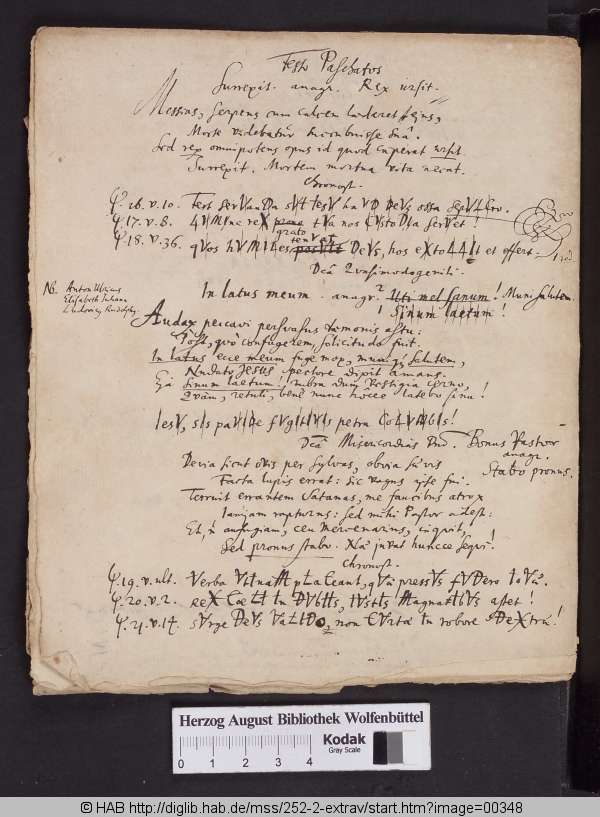 Festo Paschatos
Surrexit. anagr. Rex ursit.
Messias, serpens cum calcem laederet ejus,
Morte videbatur succubuisse suâ.
Sed rex omnipotens opus id quod cuperat ursit.
Surrexit. Mortem mortua vita necat.
Chronost.
ψ. 16. v. 10. serVanDa DeVs ossa sepVLCro.
ψ. 17. v. 8. LVMIne reX grato tVa nos CVstoDIa serVet!
ψ. 18. v. 36. qVos hVMILes DeVs, hos eXtoLLIt et offert.
Dcâ Quasimodogeniti.
NB. Anton Ulricus
Elisabeth Juliana
Ludovicus Rudolphus
In latus meum. anagr. Uti mel sanum! Muni salutem
Sinum laetum!
Audax peccavi persuasus daemonis astu:
Post, quò confugerem, solicitudo fuit.
In latus ecce meum fuge mox, muniq; salutem,
Nudato JESUS pectore dixit amans.
sinum laetum! vestigia cerno,
Quàm, retuli, benè nunc hocce latebo sinu!
IesV, sIs paVIDe fVgItIVIs petra CoLVMbIs!
Dcâ Misericordias Dni. Bonus Pastor
anagr.
Stabo pronus.
Devia sicut ovis per sylvas, obvia saevis
Facta lupis errat: sic vagus ipse fui.
Terruit errantem Satanas, me faucibus atrox
Iamjam rapturus: sed mihi Pastor adest:
Et, aufugiam, ceu mercenarius, inquit,
Sed pronus stabo. Nâ juvat huncce sequi!
Chronost.
ψ. 19. v. ult. Verba VtInaM pLaCeant, qVae pressVs fVDero
ψ. 20. v. 2. CoeLI In DVbIIs, IVstIs MagnatIbVs asset!
ψ. 21. v. 14. sVrge DeVs VaLIDo, non CVrta In robore DeXtrâ!
Herzog August Bibliothek Wolfenbüttel
0 1 2 3 4
Kodak
Gray Scale
© HAB http://diglib.hab.de/mss/252-2-extrav/start.htm?image=00348